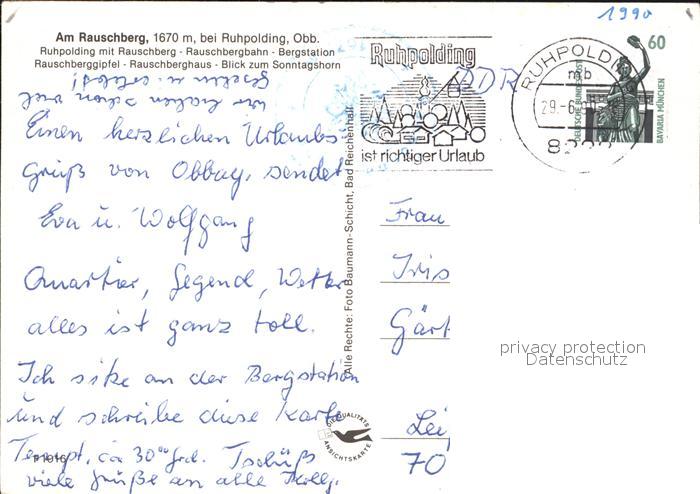 1990
Am Rauschberg, 1670 m, bei Ruhpolding, Obb.
Ruhpolding mit Rauschberg - Rauschbergbahn - Bergstation
Rauschberggipfel - Rauschberghaus - Blick zum Sonntagshorn
wir haben schon viel
gesehen u. erlebt!
Einen herzlichen Urlaubs-
gruß von Obbay. sendet
Eva u. Wolfgang
Quartier, Gegend, Wetter
alles ist ganz toll.
Ich sitze an der Bergstation
und schreibe diese Karte
Tempt. ca 30°° Grd. Tschüß
viele Grüße an alle Kollg.
Alle Rechte: Foto Baumann-Schicht, Bad Reichenhall
DIE QUALITÄTS
ANSICHTSKARTE
Ruhpolding
ist richtiger Urlaub
DDR
RUHPOLD
mb
29.-6.
82
60
DEUTSCHE BUNDESPOST
BAVARIA MÜNCHEN
Frau
Iris
Gärt
Lei
70
privacy protection
Datenschutz